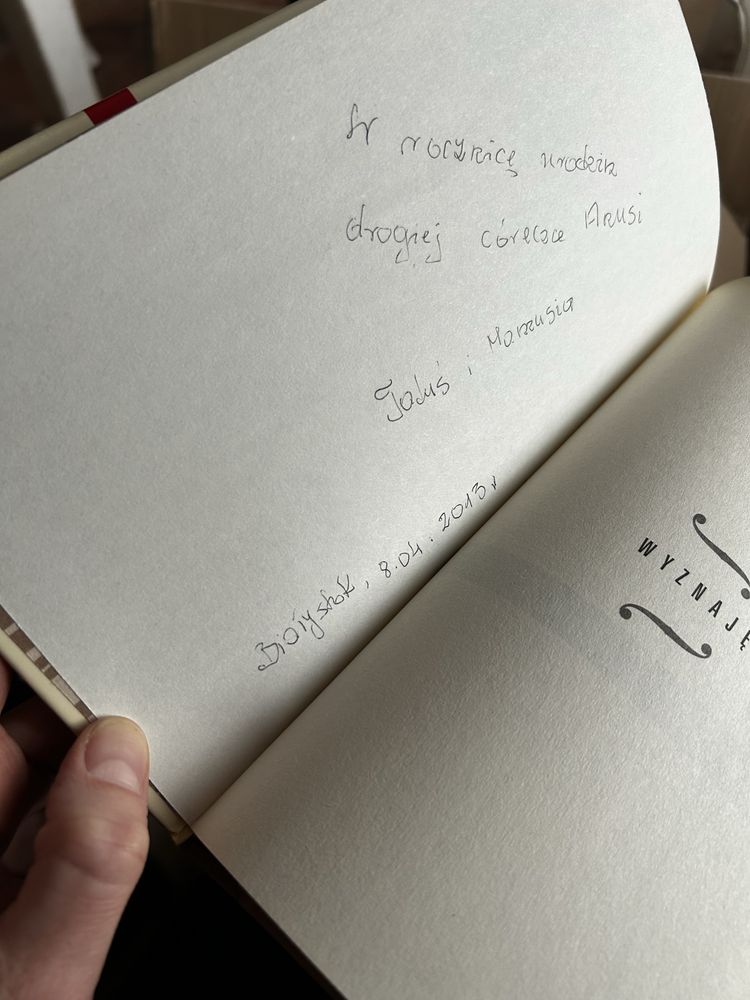 W rocznicę urodzin
drogiej córeczce Anusi
Taduś i Mamusia
Białystok, 8.04.2013r
WYZNAJĘ